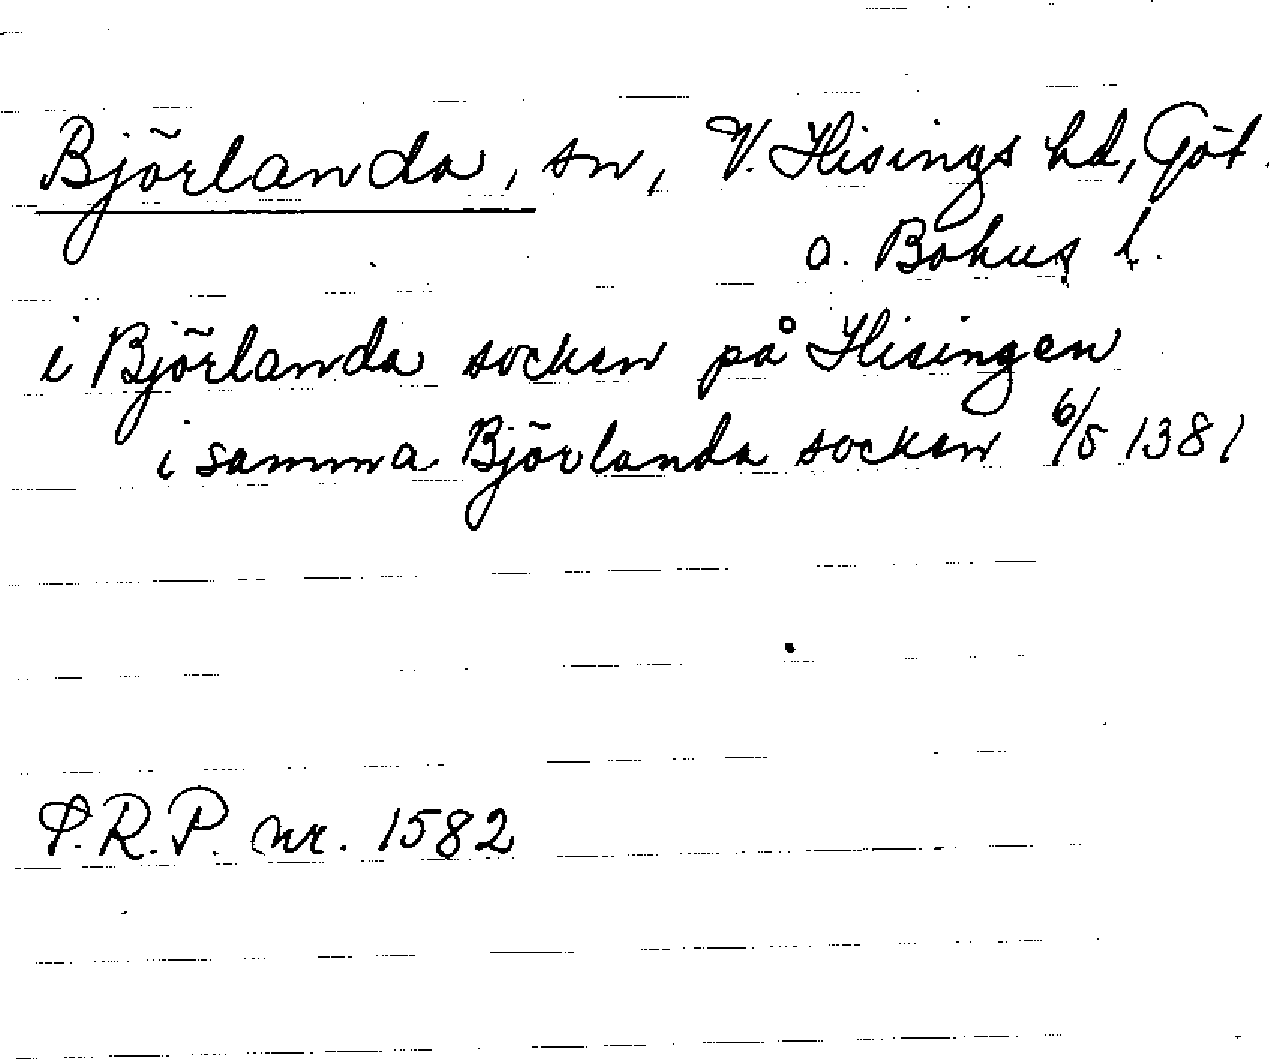 Björlanda, sn, V. Hisings hd, Göt.
o. Bohus l.
i Björlanda socken på Hisingen
i samma Björlanda socken 6/5 1381
S.R.P. nr. 1582